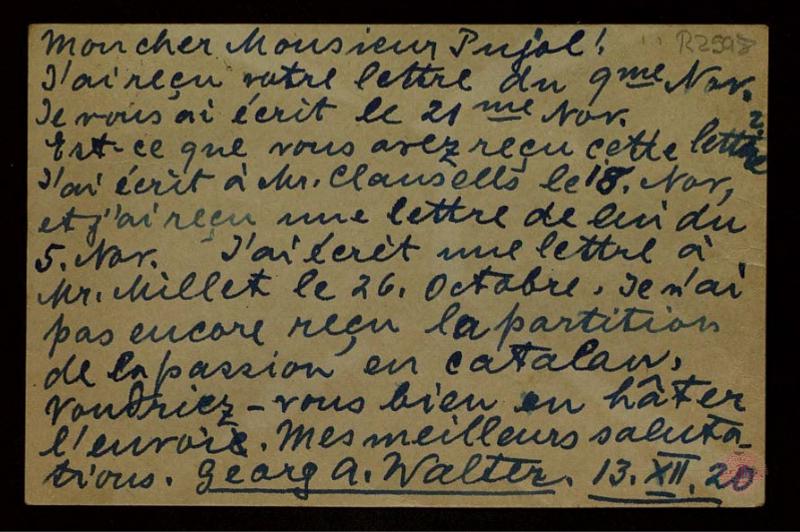 Mon cher Monsieur Pujol! R2598
J'ai reçu votre lettre du 9me Nov.
Je vous ai écrit le 21me Nov.
Est-ce que vous avez reçu cette lettre?
J'ai écrit à Mr. Clausells le 18. Nov,
et j'ai reçu une lettre de lui du
5. Nov. J'ai écrit une lettre à
Mr. Millet le 26. Octobre. Je n'ai
pas encore reçu la partition
de la passion en catalan,
voudriez-vous bien en hâter
l'envoie. Mes meilleurs saluta-
tions. Georg A. Walter. 13. XII. 20